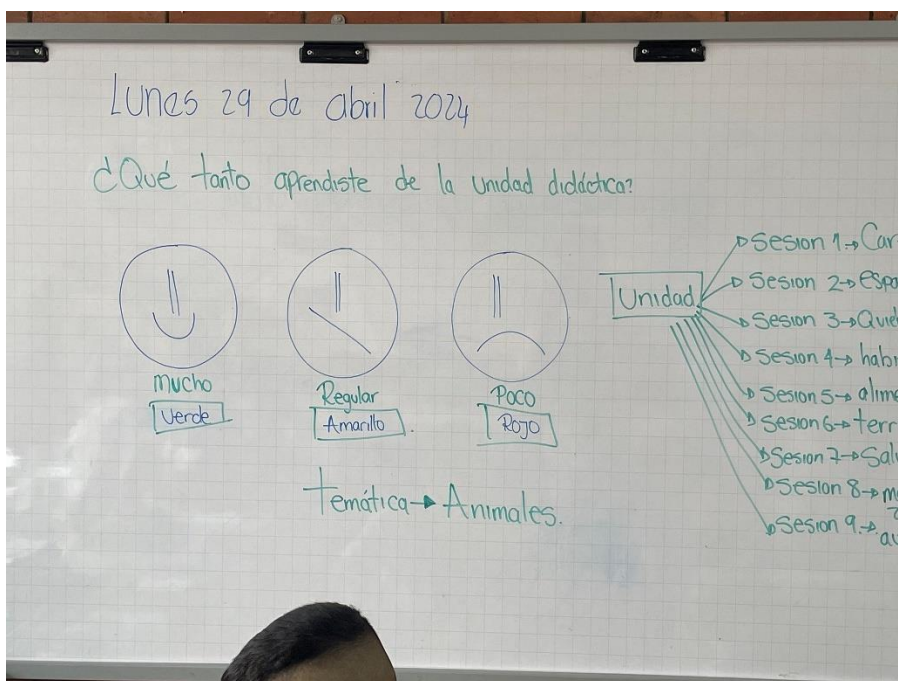 Lunes 29 de abril 2024
¿Qué tanto aprendiste de la unidad didáctica?
mucho
Verde
Regular
Amarillo
Poco
Rojo
Temática → Animales.
Unidad
Sesion 1 →
Sesion 2 →
Sesion 3 →
Sesion 4 →
Sesion 5 →
Sesion 6 →
Sesion 7 →
Sesion 8 →
Sesion 9. →